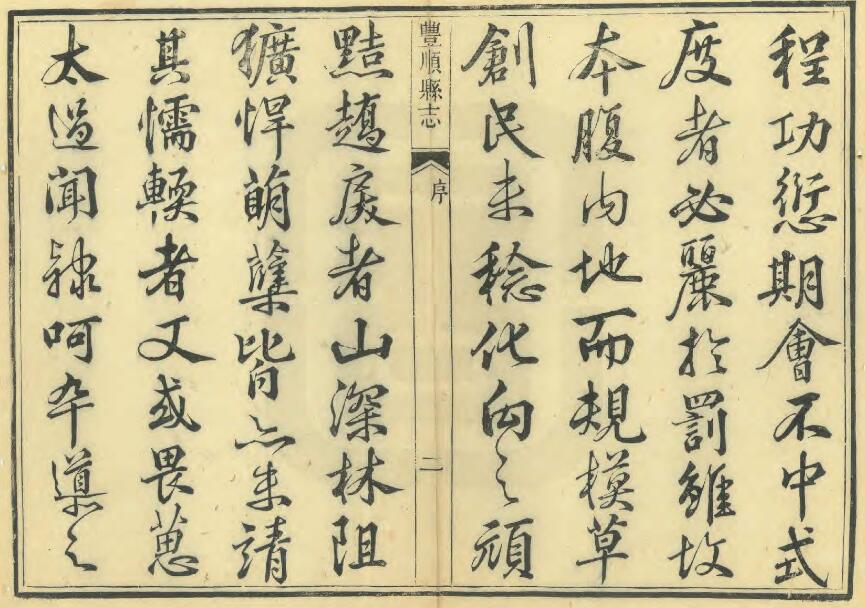 程功愆期會不中式
度者必麗於罰雖故
本腹內地而規模草
創民未稔化向之頑
豐順縣志 序 二
黠者山深林阻
獷悍萌蘖皆未靖
其懦輭者又或畏葸
太過聞隸呵卒導之